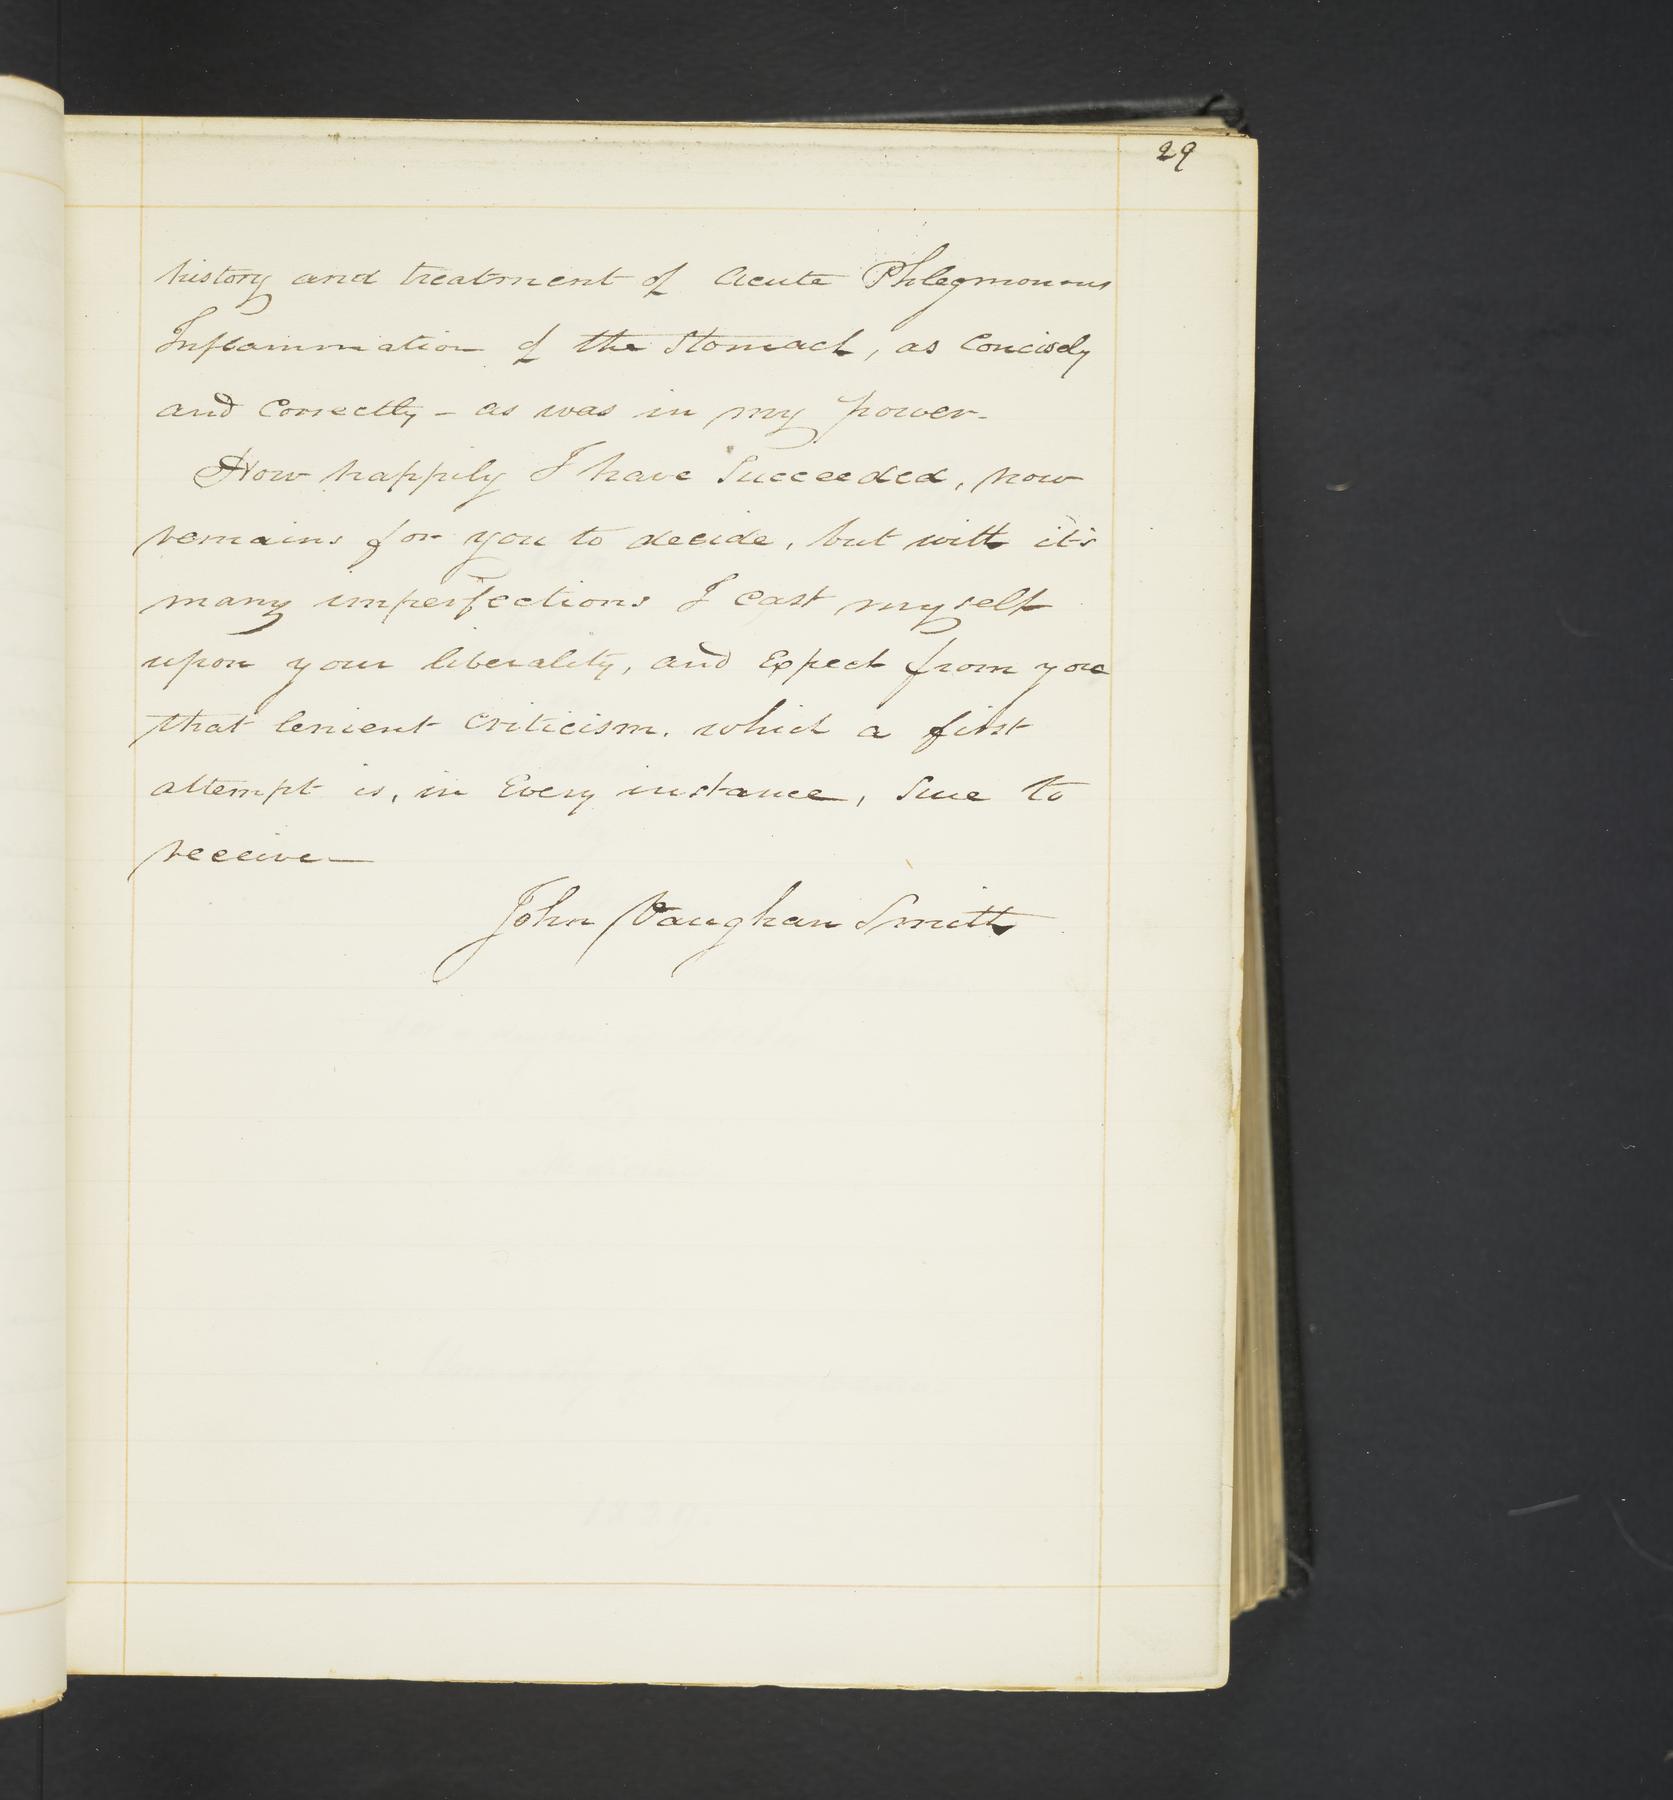 29
history and treatment of Acute Phlegmonous
Inflammation of the Stomach, as Concisely
and Correctly - as was in my power -
How happily I have Succeeded, now
remains for you to decide, but with it's
many imperfections I cast myself
upon your liberality, and Expect from you
that lenient Criticism, which a first
attempt is, in Every instance, Sure to
receive -
John Vaughan Smith